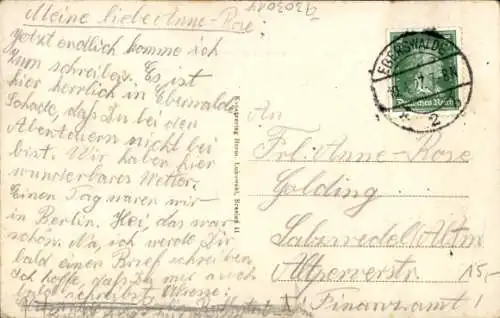 Meine liebe Anne-Rose!
Jetzt endlich komme ich
zum schreiben. Es ist
hier herrlich in Eberswalde
Schade, daß Du bei den
Abenteuern nicht bei
bist. Wir haben hier
wunderbares Wetter.
Einen Tag waren wir
in Berlin. Hei, das war
schön. Na, ich werde Dir
bald einen Brief schreiben
Ich hoffe, daß Du mir auch
bald schreibst
EBERSWALDE
2
Deutsches Reich
An
Frl. Anne-Rose
Golding
Salzwedel Altm
Altperverstr. 15,-
Finanzamt!